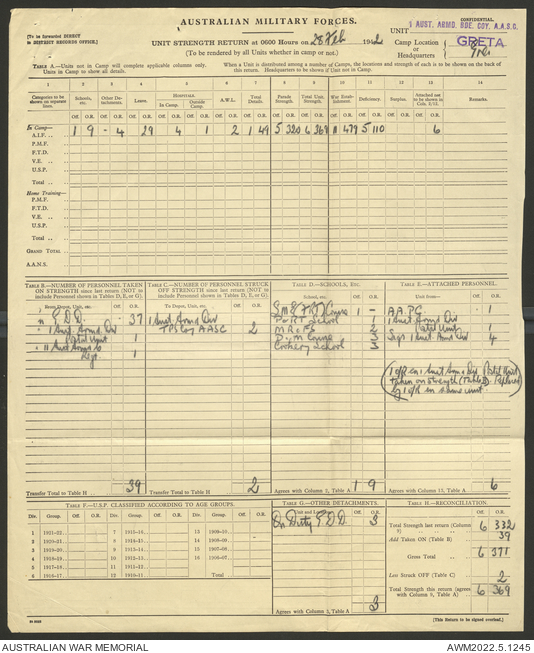 AUSTRALIAN MILITARY FORCES.
CONFIDENTIAL
[To be forwarded DIRECT
to DISTRICT RECORDS OFFICE.]
UNIT 1 AUST. ARMD. BDE. COY. A.A.S.C.
UNIT STRENGTH RETURN at 0600 Hours on 28 Feb 1942
Camp Location GRETA
or
Headquarters
(To be rendered by all Units whether in camp or not.)
TABLE A.—Units not in Camp will complete applicable columns only. Units in Camp to show all details.
When a Unit is distributed among a number of Camps, the locations and strength of each is to be shown on the back of this return. Headquarters to be shown if Unit not in Camp.
1 2 3 4 5 6 7 8 9 10 11 12 13 14
Categories to be shown on separate lines.
Schools, etc.
Other Detachments.
Leave.
HOSPITALS.
In Camp.
Outside Camp.
A.W.L.
Total Details.
Parade Strength.
Total Strength.
War Establishment.
Deficiency.
Surplus.
Attached not to be shown in Cols. 2/12.
Remarks.
Off. O.R. Off. O.R. Off. O.R. Off. O.R. Off. O.R. Off. O.R. Off. O.R. Off. O.R. Off. O.R. Off. O.R. Off. O.R. Off. O.R. Off. O.R.
In Camp—
A.I.F. .. 1 9 - 4 29 4 1 2 1 49 5 320 6 369 11 479 5 110 6
P.M.F.
F.T.D.
V.E. ..
U.S.P.
Total ..
Home Training—
P.M.F.
F.T.D.
V.E. ..
U.S.P.
Total ..
GRAND TOTAL ..
A.A.N.S.
TABLE B.—NUMBER OF PERSONNEL TAKEN ON STRENGTH since last return (NOT to include Personnel shown in Tables D, E, or G).
From Depot, Unit, etc. Off. O.R.
G.D.D. - 37
1 Aust Armd Div
1
1
Transfer Total to Table H .. 39
TABLE C.—NUMBER OF PERSONNEL STRUCK OFF STRENGTH since last return (NOT to include Personnel shown in Tables D, E, or G).
To Depot, Unit, etc. Off. O.R.
1 Aust Armd Div
AASC 2
Transfer Total to Table H .. 2
TABLE D.—SCHOOLS, ETC.
School, etc. Off. O.R.
Course 1 -
School 1
2
D & M Course 3
Cookery School 3
Agrees with Column 2, Table A 1 9
TABLE E.—ATTACHED PERSONNEL.
Unit from— Off. O.R.
A.A.P.C. - 1
1 Aust Armd Div
1
Sigs 1 Aust Armd Div 4
(1 O/R ex 1 Aust Armd Div
taken on strength (Table B). Replaced
by 1 O/R ex same unit.)
Agrees with Column 13, Table A 6
TABLE F.—U.S.P. CLASSIFIED ACCORDING TO AGE GROUPS.
Div. Group. Off. O.R. Div. Group. Off. O.R. Div. Group. Off. O.R.
TABLE G.—OTHER DETACHMENTS.
Off. O.R.
On Duty G.D.D. 3
Agrees with Column 3, Table A 3
TABLE H.—RECONCILIATION.
Off. O.R.
Total Strength last return (Column 9) 6 332
Add Taken ON (Table B) 39
Gross Total 6 371
Less Struck OFF (Table C) 2
Total Strength this return (agrees with Column 9, Table A) 6 369
(This Return to be signed overleaf.)
AUSTRALIAN WAR MEMORIAL
AWM2022.5.1245